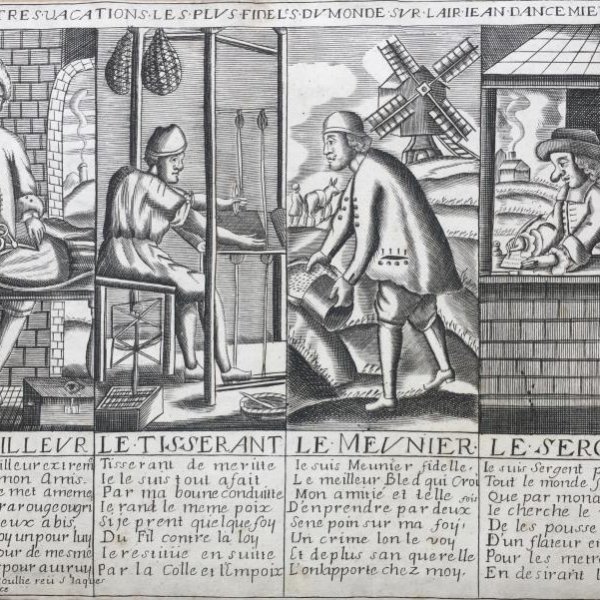 TRES·VACATIONS·LES·PLVS·FIDEL'S·DVMONDE·SVR·LAIR·IEAN·DANCE MIE
ILLEUR
illeur extrem
mon Amis.
e met ameme
eux abis,
oy un pour luy
our de mesme
pour autruy
LE·TISSERANT
Tisserant de meritte
Ie le suis tout afait
Par ma bonne conduitte
Ie rant le meme poix
Si je prent quelque foy
Du Fil contre la loy
Ie restitüe en suitte
Par la Colle et l'Empoix
LE·MEVNIER·
Ie suis Meunier fidelle,
Le meilleur Bled qui Croi
Mon amitié et telle
D'enprendre par deux fois
Sene poin sur ma foy,
Un crime lon le voy
Et de plus san querelle
L'on lapporte chez moy.
LE·SERG
Ie suis Sergent p
Tout le monde
Que par mona
Ie cherche le
De les pousse
D'un flateur e
Pour les metr
En desirant l